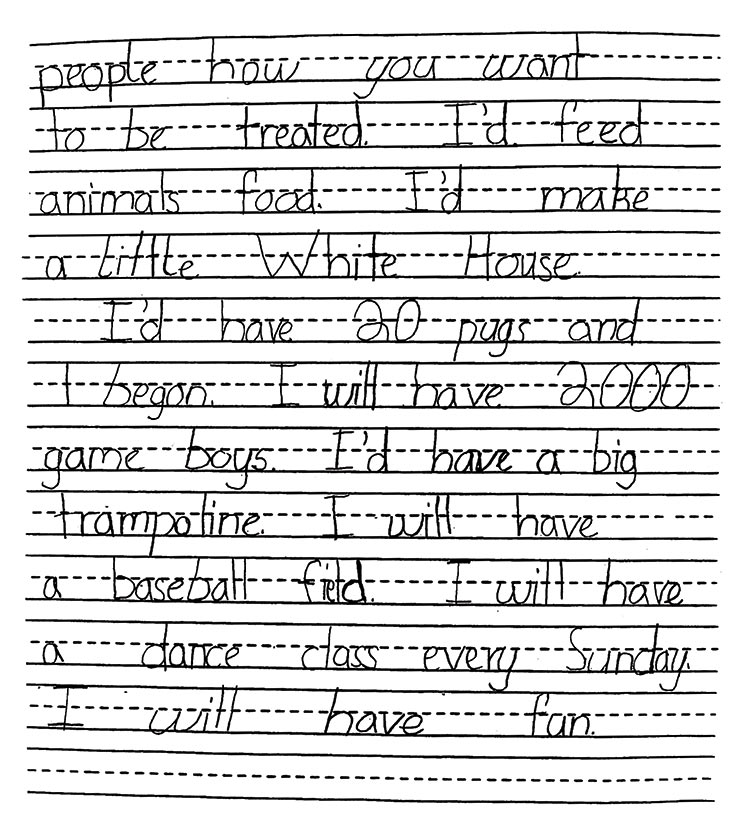 people how you want
to be treated. I'd feed
animals food. I'd make
a little White House.
I'd have 20 pugs and
1 begon. I will have 2000
game boys. I'd have a big
trampoline. I will have
a baseball field. I will have
a dance class every Sunday.
I will have fun.